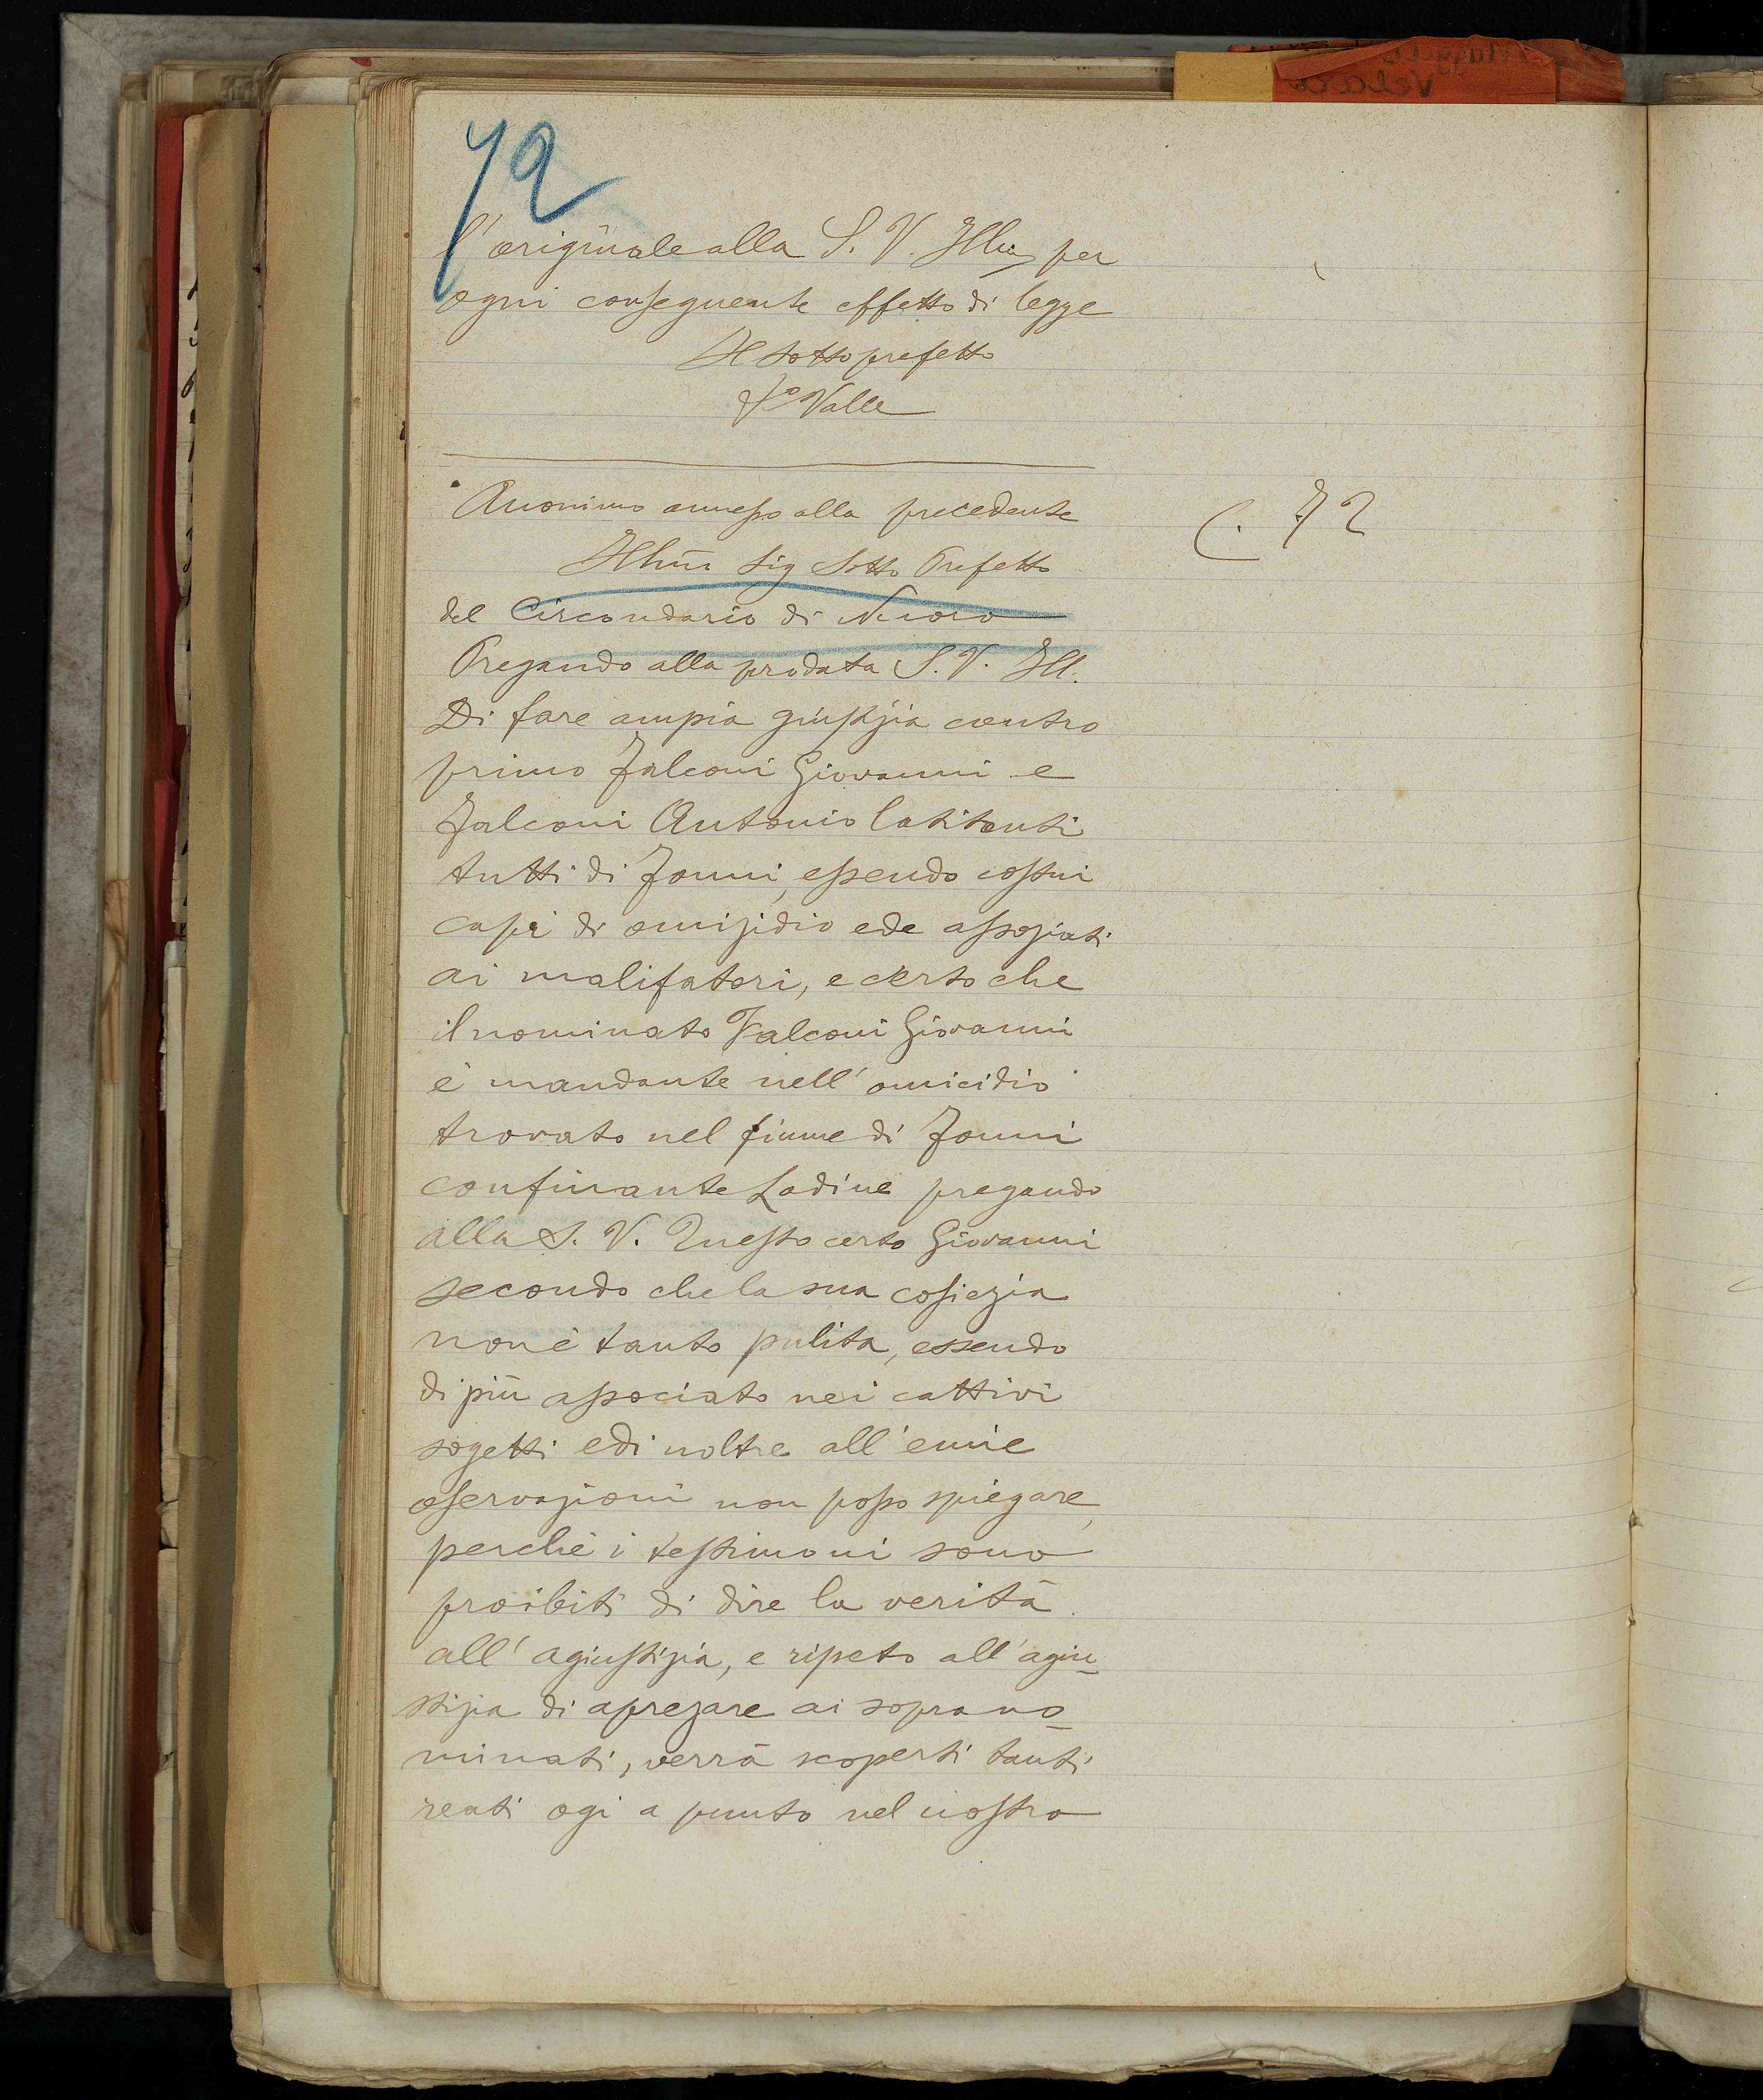 72
l'originale alla S. V. Illma per
ogni conseguente effetto di legge
Il Sottoprefetto
Fo Valle
Anonimo annesso alla precedente
C. 72
Illmo Sig Sotto Prefetto
del Circondario di Nuoro
Pregando alla prodata S. V. Ill.
Di fare ampia giustizia contro
primo Falconi Giovanni e
Falconi Antonio latitanti
tutti di Fonni, essendo costui
capi di omizidio ede assoziati
ai malifatori, e certo che
il nominato Falconi Giovanni
è mandante nell'omicidio
trovato nel fiume di Fonni
confinante Lodine pregando
alla S. V. Questo certo Giovanni
secondo che la sua cosiezia
non è tanto pulita, essendo
di più associato nei cattivi
sogetti edi noltre all'emie
oservazioni non posso spiegare,
perchè i testimoni sono
proibiti di dire la verità
all'agiustizia, e ripeto all'agiu-
stizia di aprezare ai soprano-
minati, verrà scoperti tanti
reati ogi a punto nel nostro
Velaco